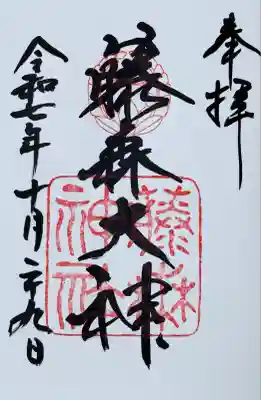 奉拝
藤森大神
藤森神社
令和七年十月二十九日